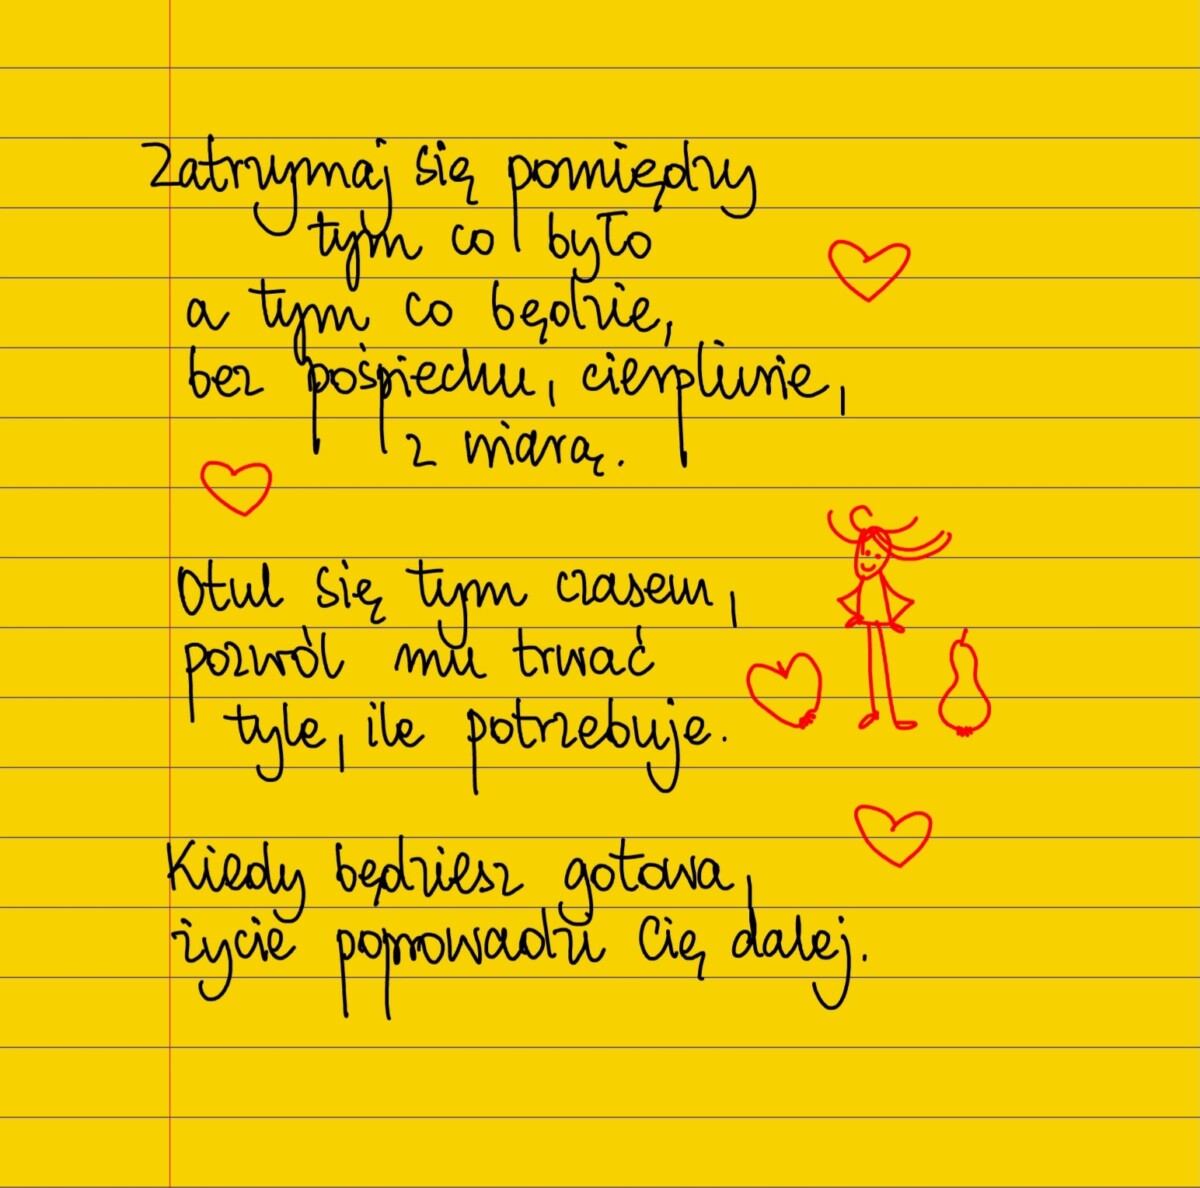 Zatrzymaj się pomiędzy
tym co było
a tym co będzie,
bez pośpiechu, cierpliwie,
z wiarą.
Otul się tym czasem,
pozwól mu trwać
tyle, ile potrzebuje.
Kiedy będziesz gotowa,
życie poprowadzi Cię dalej.